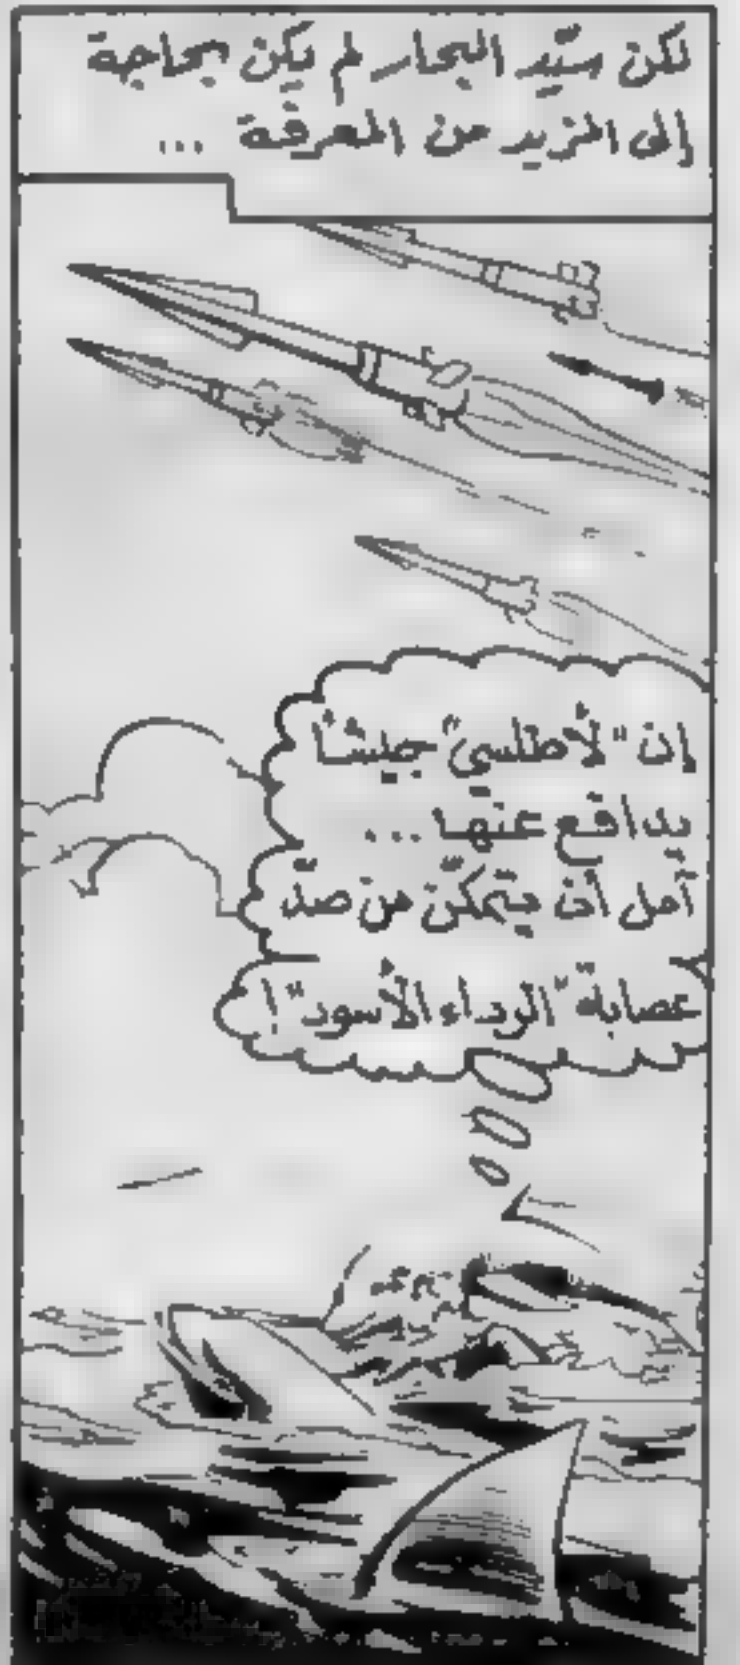 لكن سيّد البحار لم يكن بحاجة
إلى المزيد من المعرفة ...
إن "لأطلسي" جيشًا
يدافع عنها ...
آمل أن يتمكّن من صدّ
عصابة "الرداء الأسود"!